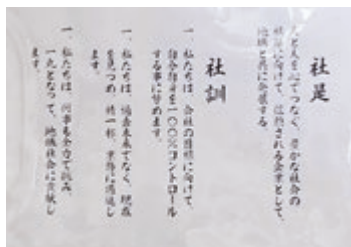 社是
人と人を心でつなぐ、豊かな社会の
に向けて、信頼される企業として、
地域と共に発展する。
社訓
一、私たちは、会社の目標に向けて、
自分自身を一〇〇％コントロール
する事に努めます。
一、私たちは、過去未来でなく、現在
を見つめ、精一杯、業務に邁進し
ます。
一、私たちは、何事も全力で挑み、
一丸となって、地域社会に貢献し
ます。